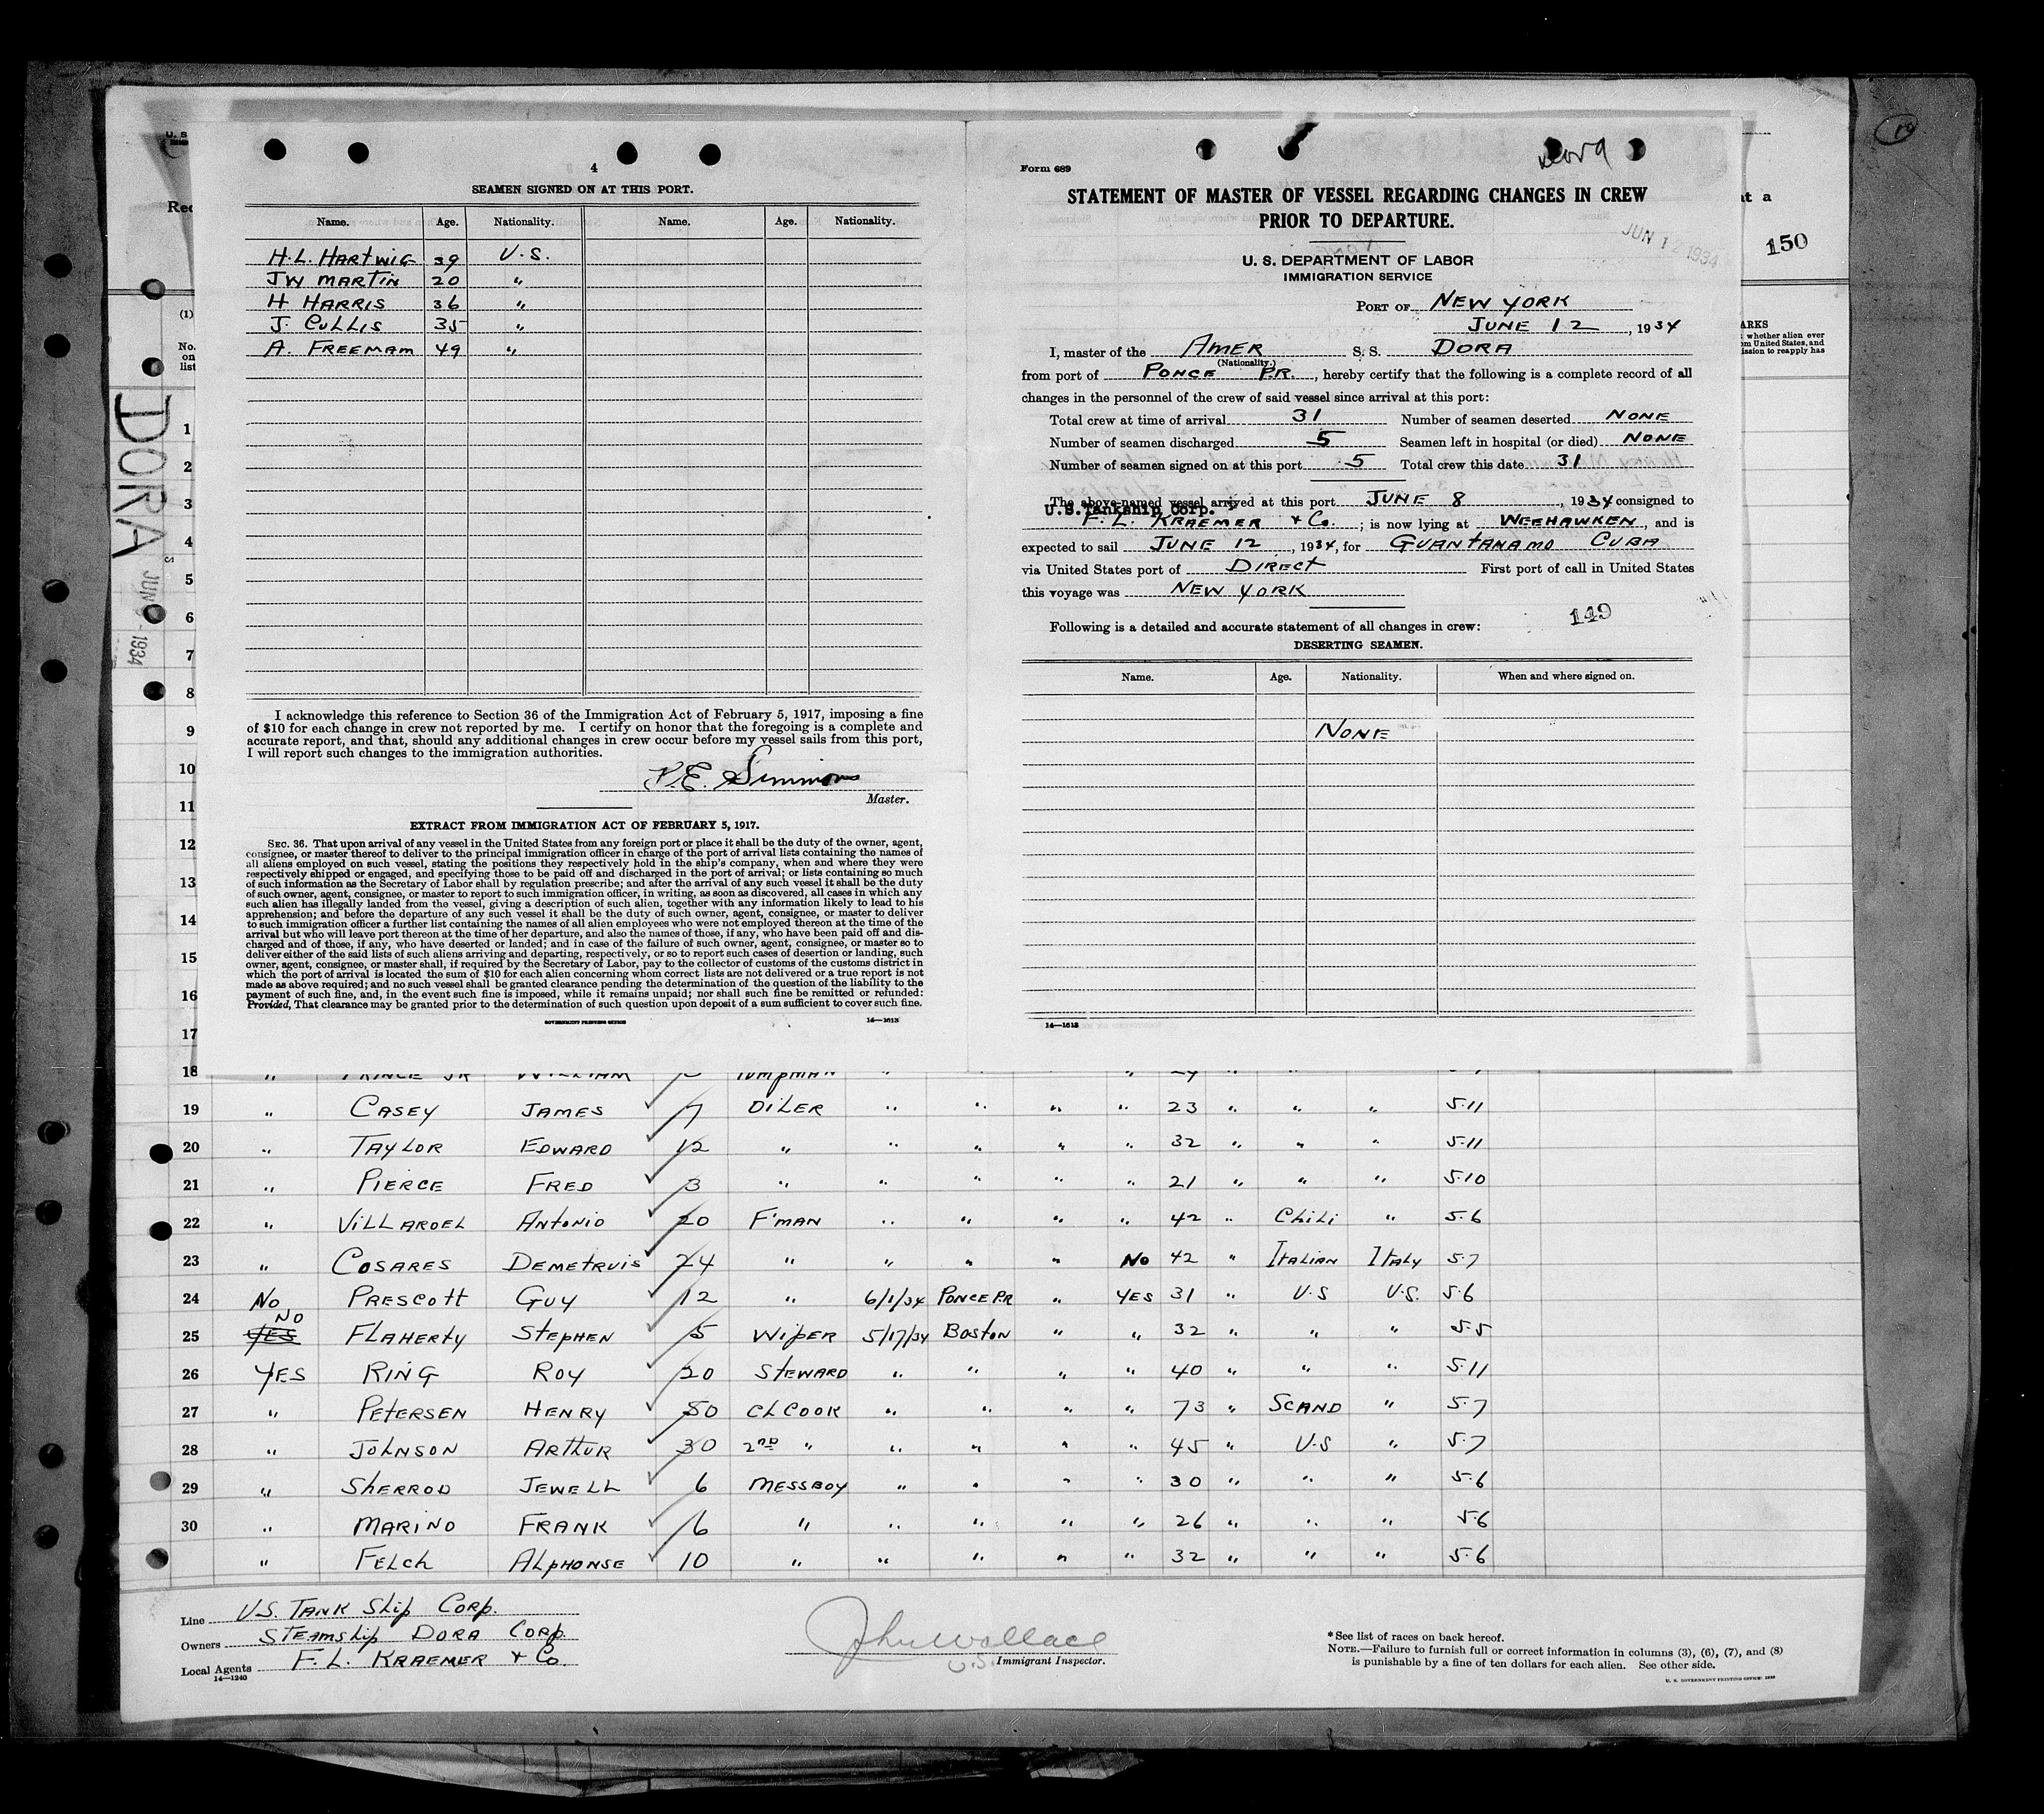 4
SEAMEN SIGNED ON AT THIS PORT.
Name. Age. Nationality. Name. Age. Nationality.
H.L. HARTWIG 39 U.S.
JW MARTIN 20 "
H HARRIS 36 "
J. CULLIS 35 "
A. FREEMAM 49 "
I acknowledge this reference to Section 36 of the Immigration Act of February 5, 1917, imposing a fine
of $10 for each change in crew not reported by me. I certify on honor that the foregoing is a complete and
accurate report, and that, should any additional changes in crew occur before my vessel sails from this port,
I will report such changes to the immigration authorities.
Simmons
Master.
EXTRACT FROM IMMIGRATION ACT OF FEBRUARY 5, 1917.
SEC. 36. That upon arrival of any vessel in the United States from any foreign port or place it shall be the duty of the owner, agent,
consignee, or master thereof to deliver to the principal immigration officer in charge of the port of arrival lists containing the names of
all aliens employed on such vessel, stating the positions they respectively hold in the ship's company, when and where they were
respectively shipped or engaged, and specifying those to be paid off and discharged in the port of arrival; or lists containing so much
of such information as the Secretary of Labor shall by regulation prescribe; and after the arrival of any such vessel it shall be the duty
of such owner, agent, consignee, or master to report to such immigration officer, in writing, as soon as discovered, all cases in which any
such alien has illegally landed from the vessel, giving a description of such alien, together with any information likely to lead to his
apprehension; and before the departure of any such vessel it shall be the duty of such owner, agent, consignee, or master to deliver
to such immigration officer a further list containing the names of all alien employees who were not employed thereon at the time of the
arrival but who will leave port thereon at the time of her departure, and also the names of those, if any, who have been paid off and dis-
charged and of those, if any, who have deserted or landed; and in case of the failure of such owner, agent, consignee, or master so to
deliver either of the said lists of such aliens arriving and departing, respectively, or so to report such cases of desertion or landing, such
owner, agent, consignee, or master shall, if required by the Secretary of Labor, pay to the collector of customs of the customs district in
which the port of arrival is located the sum of $10 for each alien concerning whom correct lists are not delivered or a true report is not
made as above required; and no such vessel shall be granted clearance pending the determination of the question of the liability to the
payment of such fine, and, in the event such fine is imposed, while it remains unpaid; nor shall such fine be remitted or refunded:
Provided, That clearance may be granted prior to the determination of such question upon deposit of a sum sufficient to cover such fine.
GOVERNMENT PRINTING OFFICE 14—1613
Form 689
Dora
STATEMENT OF MASTER OF VESSEL REGARDING CHANGES IN CREW
PRIOR TO DEPARTURE.
JUN 12 1934
U. S. DEPARTMENT OF LABOR
IMMIGRATION SERVICE
PORT OF NEW YORK
JUNE 12, 1934
I, master of the AMER S. S. DORA
(Nationality.)
from port of PONCE P.R., hereby certify that the following is a complete record of all
changes in the personnel of the crew of said vessel since arrival at this port:
Total crew at time of arrival 31 Number of seamen deserted NONE
Number of seamen discharged 5 Seamen left in hospital (or died) NONE
Number of seamen signed on at this port 5 Total crew this date 31
The above-named vessel arrived at this port JUNE 8, 1934 consigned to
U.S.Tankship Corp.
F. L. KRAEMER + Co.; is now lying at WEEHAWKEN, and is
expected to sail JUNE 12, 1934, for GUANTANAMO CUBA
via United States port of DIRECT First port of call in United States
this voyage was NEW YORK
149
Following is a detailed and accurate statement of all changes in crew:
DESERTING SEAMEN.
Name. Age. Nationality. When and where signed on.
NONE
14—1613
150
DORA
JUN 1934
(1)
No.
on
list
1
2
3
4
5
6
7
8
9
10
11
12
13
14
15
16
17
18 " PRINCE JR WILLIAM PUMPMAN
19 " CASEY JAMES 7 OILER " " " " 23 " " " 5-11
20 " TAYLOR EDWARD 12 " " " " " 32 " " " 5-11
21 " PIERCE FRED 3 " " " " " 21 " " " 5-10
22 " VILLAROEL ANTONIO 20 F'MAN " " " " 42 " CHILI " 5-6
23 " COSARES DEMETRUIS 24 " " " " NO 42 " ITALIAN ITALY 5-7
24 NO PRESCOTT GUY 12 " 6/1/34 PONCE P.R " YES 31 " U.S U.S. 5-6
NO
25 YES FLAHERTY STEPHEN 5 WIPER 5/17/34 BOSTON " " 32 " " " 5-5
26 YES RING ROY 20 STEWARD " " " " 40 " " " 5-11
27 " PETERSEN HENRY 50 CH COOK " " " " 73 " SCAND " 5-7
28 " JOHNSON ARTHUR 30 2ND " " " " " 45 " U.S " 5-7
29 " SHERROD JEWELL 6 MESSBOY " " " " 30 " " " 5-6
30 " MARINO FRANK 6 " " " " " 26 " " " 5-6
" FELCH ALPHONSE 10 " " " " " 32 " " " 5-6
Line U.S. TANK SHIP CORP.
Owners STEAMSHIP DORA CORP.
Local Agents F. L. KRAEMER + Co.
14—1240
John Wallace
U.S. Immigrant Inspector.
* See list of races on back hereof.
NOTE.—Failure to furnish full or correct information in columns (3), (6), (7), and (8)
is punishable by a fine of ten dollars for each alien. See other side.